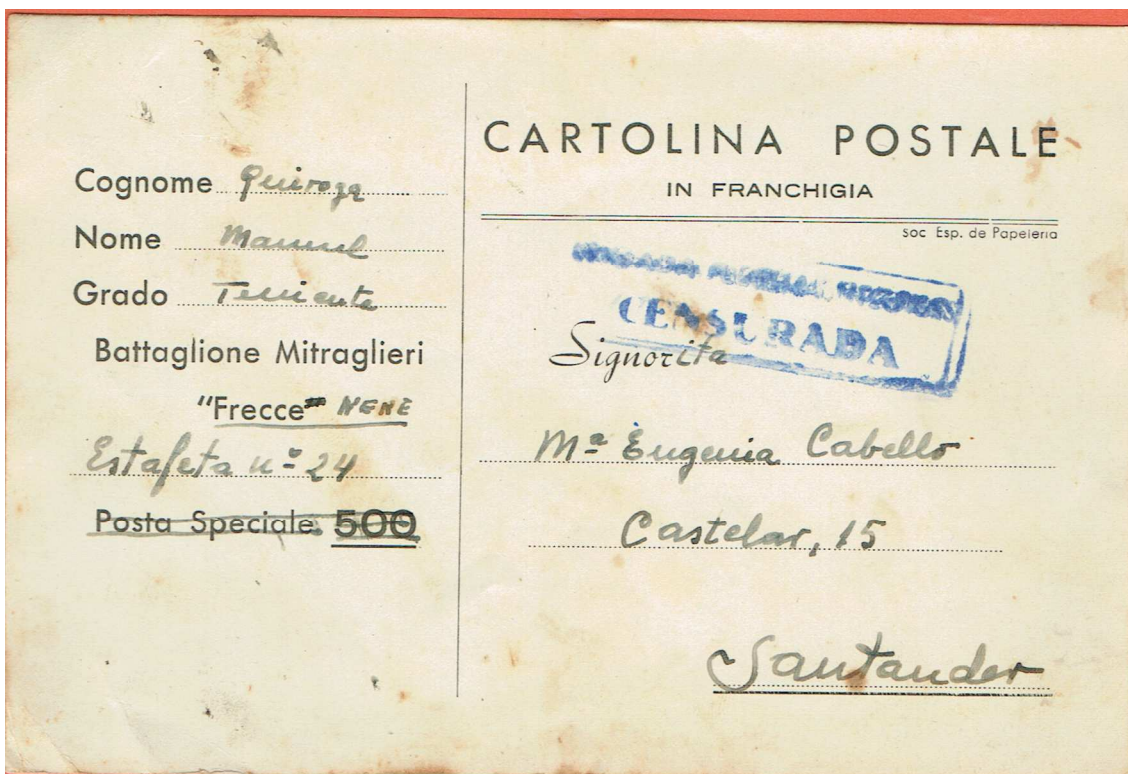 Cognome Quiroga
Nome Manuel
Grado Teniente
Battaglione Mitraglieri
"Frecce" NERE
Estafeta nº 24
Posta Speciale 500
CARTOLINA POSTALE
IN FRANCHIGIA
Soc Esp. de Papeleria
CENSURADA
Signorita
Mª Eugenia Cabello
Castelar, 15
Santander